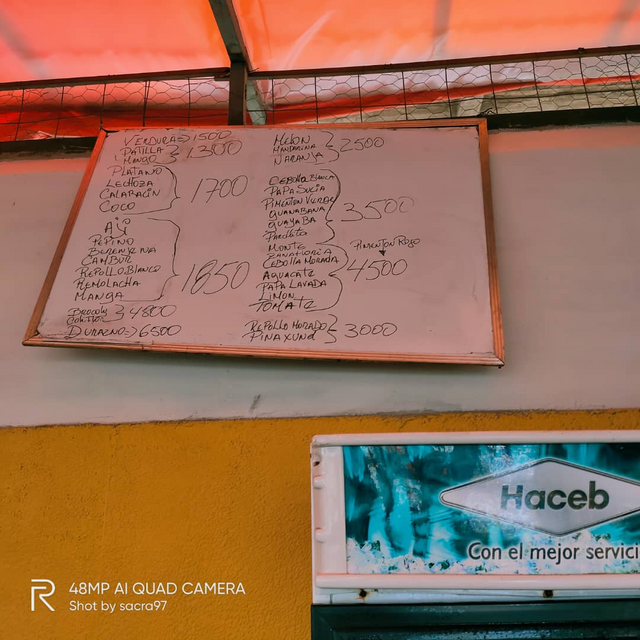 VERDURA=>1500
PATILLA
MANGO
1300
PLATANO
LECHOZA
CALABACIN
COCO
1700
AJÍ
PEPINO
BERENJENA
CAMBUR
REPOLLO BLANCO
REMOLACHA
MANGA
1850
4800
DURAZNO=>6500
MELON
MANDARINA
NARANJA
2500
CEBOLLA BLANCA
PAPA SUCIA
PIMENTON VERDE
GUANABANA
GUAYABA
3500
MONTE
ZANAHORIA
CEBOLLA MORADA
AGUACATE
PAPA LAVADA
LIMON
TOMATE
PIMENTON ROJO
4500
REPOLLO MORADO
3000
Haceb
Con el mejor servici
48MP AI QUAD CAMERA
Shot by sacra97